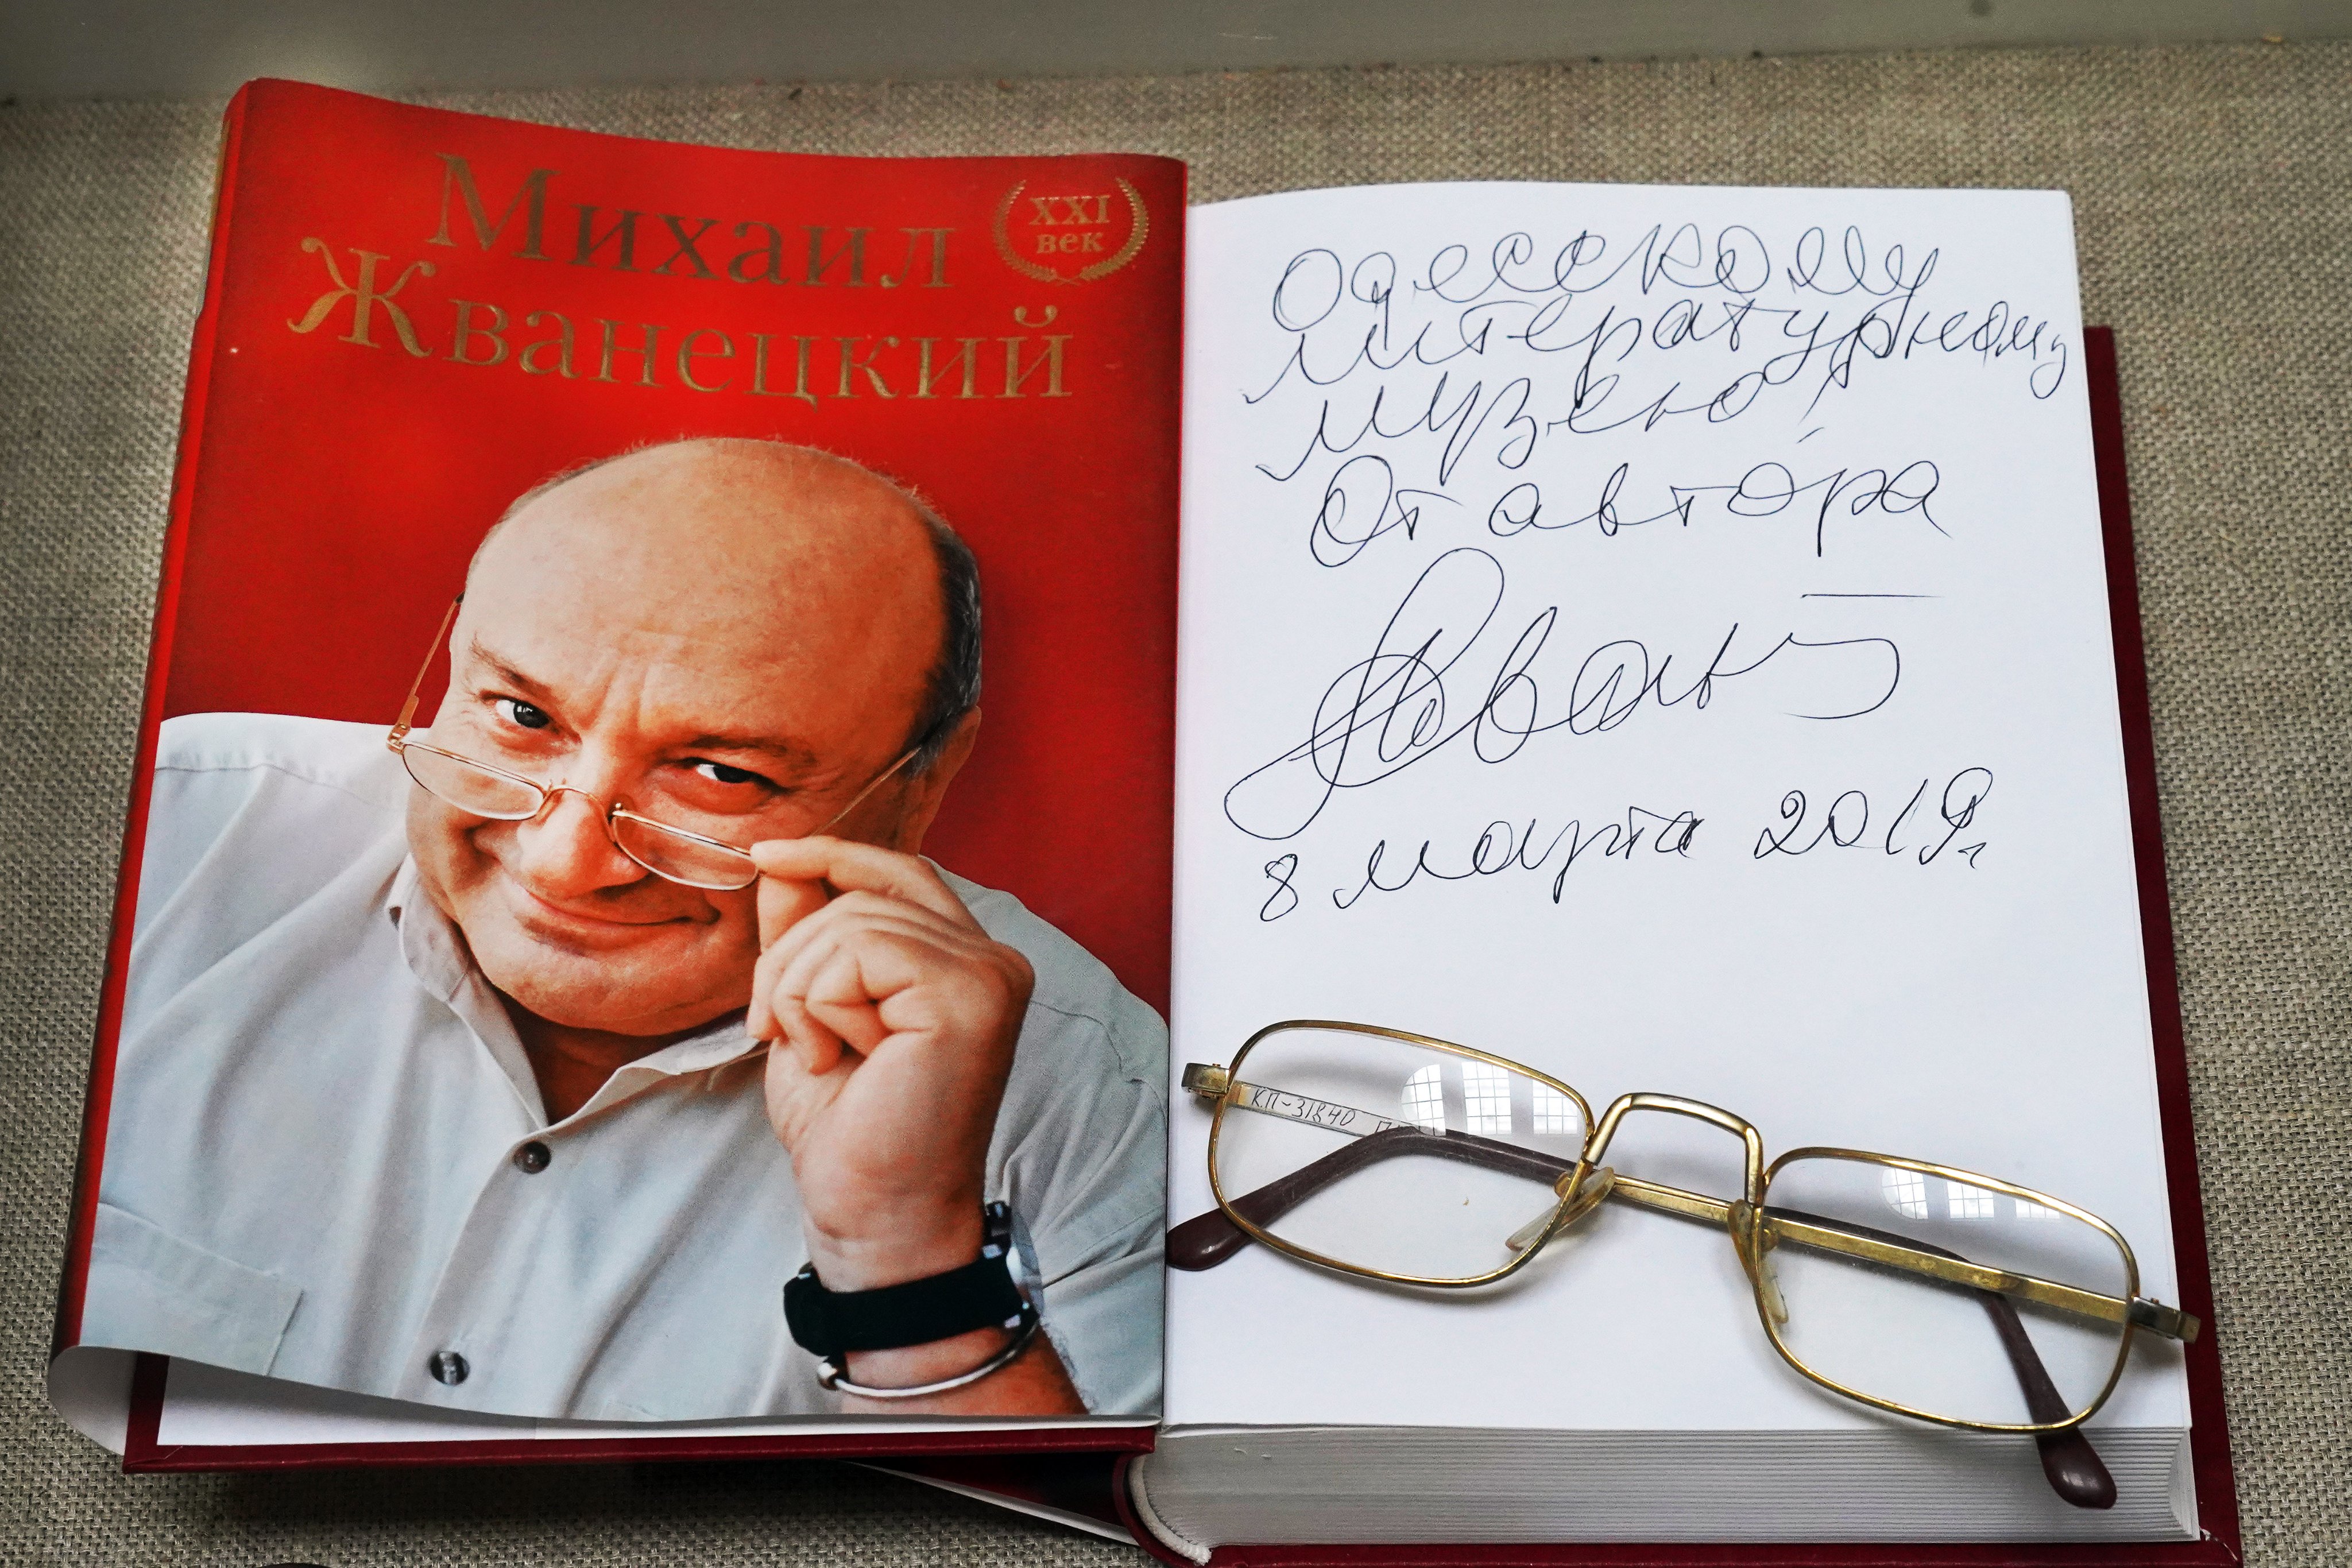 Михаил
Жванецкий
XXI
век
Одесскому
литературному
музею!
От автора
8 марта 2019 г.
КП-31840